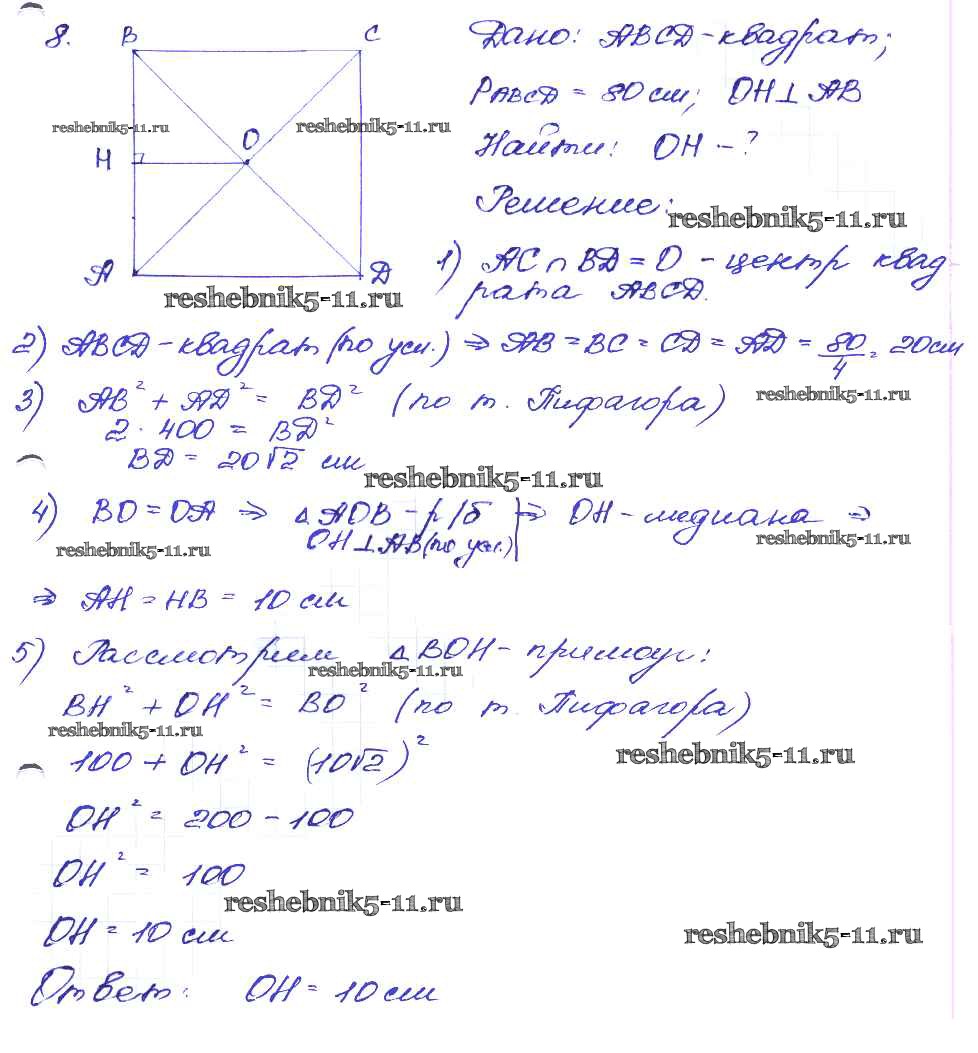 8.
B
C
reshebnik5-11.ru
reshebnik5-11.ru
O
H
A
D
reshebnik5-11.ru
Дано: ABCD-квадрат;
PABCD = 80 см; OH⊥AB
Найти: OH - ?
Решение:
reshebnik5-11.ru
1) AC∩BD = O - центр квад
рата ABCD.
2) ABCD-квадрат (по усл.) ⇒ AB = BC = CD = AD = 80/4 = 20 см
3) AB² + AD² = BD² (по т. Пифагора)
reshebnik5-11.ru
2 · 400 = BD²
BD = 20√2 см
reshebnik5-11.ru
4) BO = OA ⇒ △AOB - р/б | ⇒ OH - медиана ⇒
OH⊥AB (по усл.)
reshebnik5-11.ru
reshebnik5-11.ru
⇒ AH = HB = 10 см
5) Рассмотрим △BOH - прямоуг:
reshebnik5-11.ru
BH² + OH² = BO² (по т. Пифагора)
reshebnik5-11.ru
reshebnik5-11.ru
100 + OH² = (10√2)²
OH² = 200 - 100
OH² = 100
reshebnik5-11.ru
OH = 10 см
reshebnik5-11.ru
Ответ: OH = 10 см